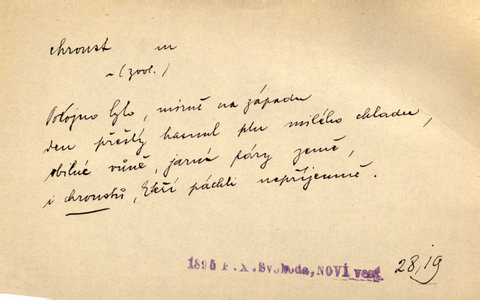 chroust m
~ (zool.)
Pokojno bylo, mírně na západu
den přešlý hasnul pln milého chladu,
obilné vůně, jarné páry země,
i chroustů, kteří páchli nepříjemně.
1895 F. X. Svoboda, NOVÍ vesn
28,19